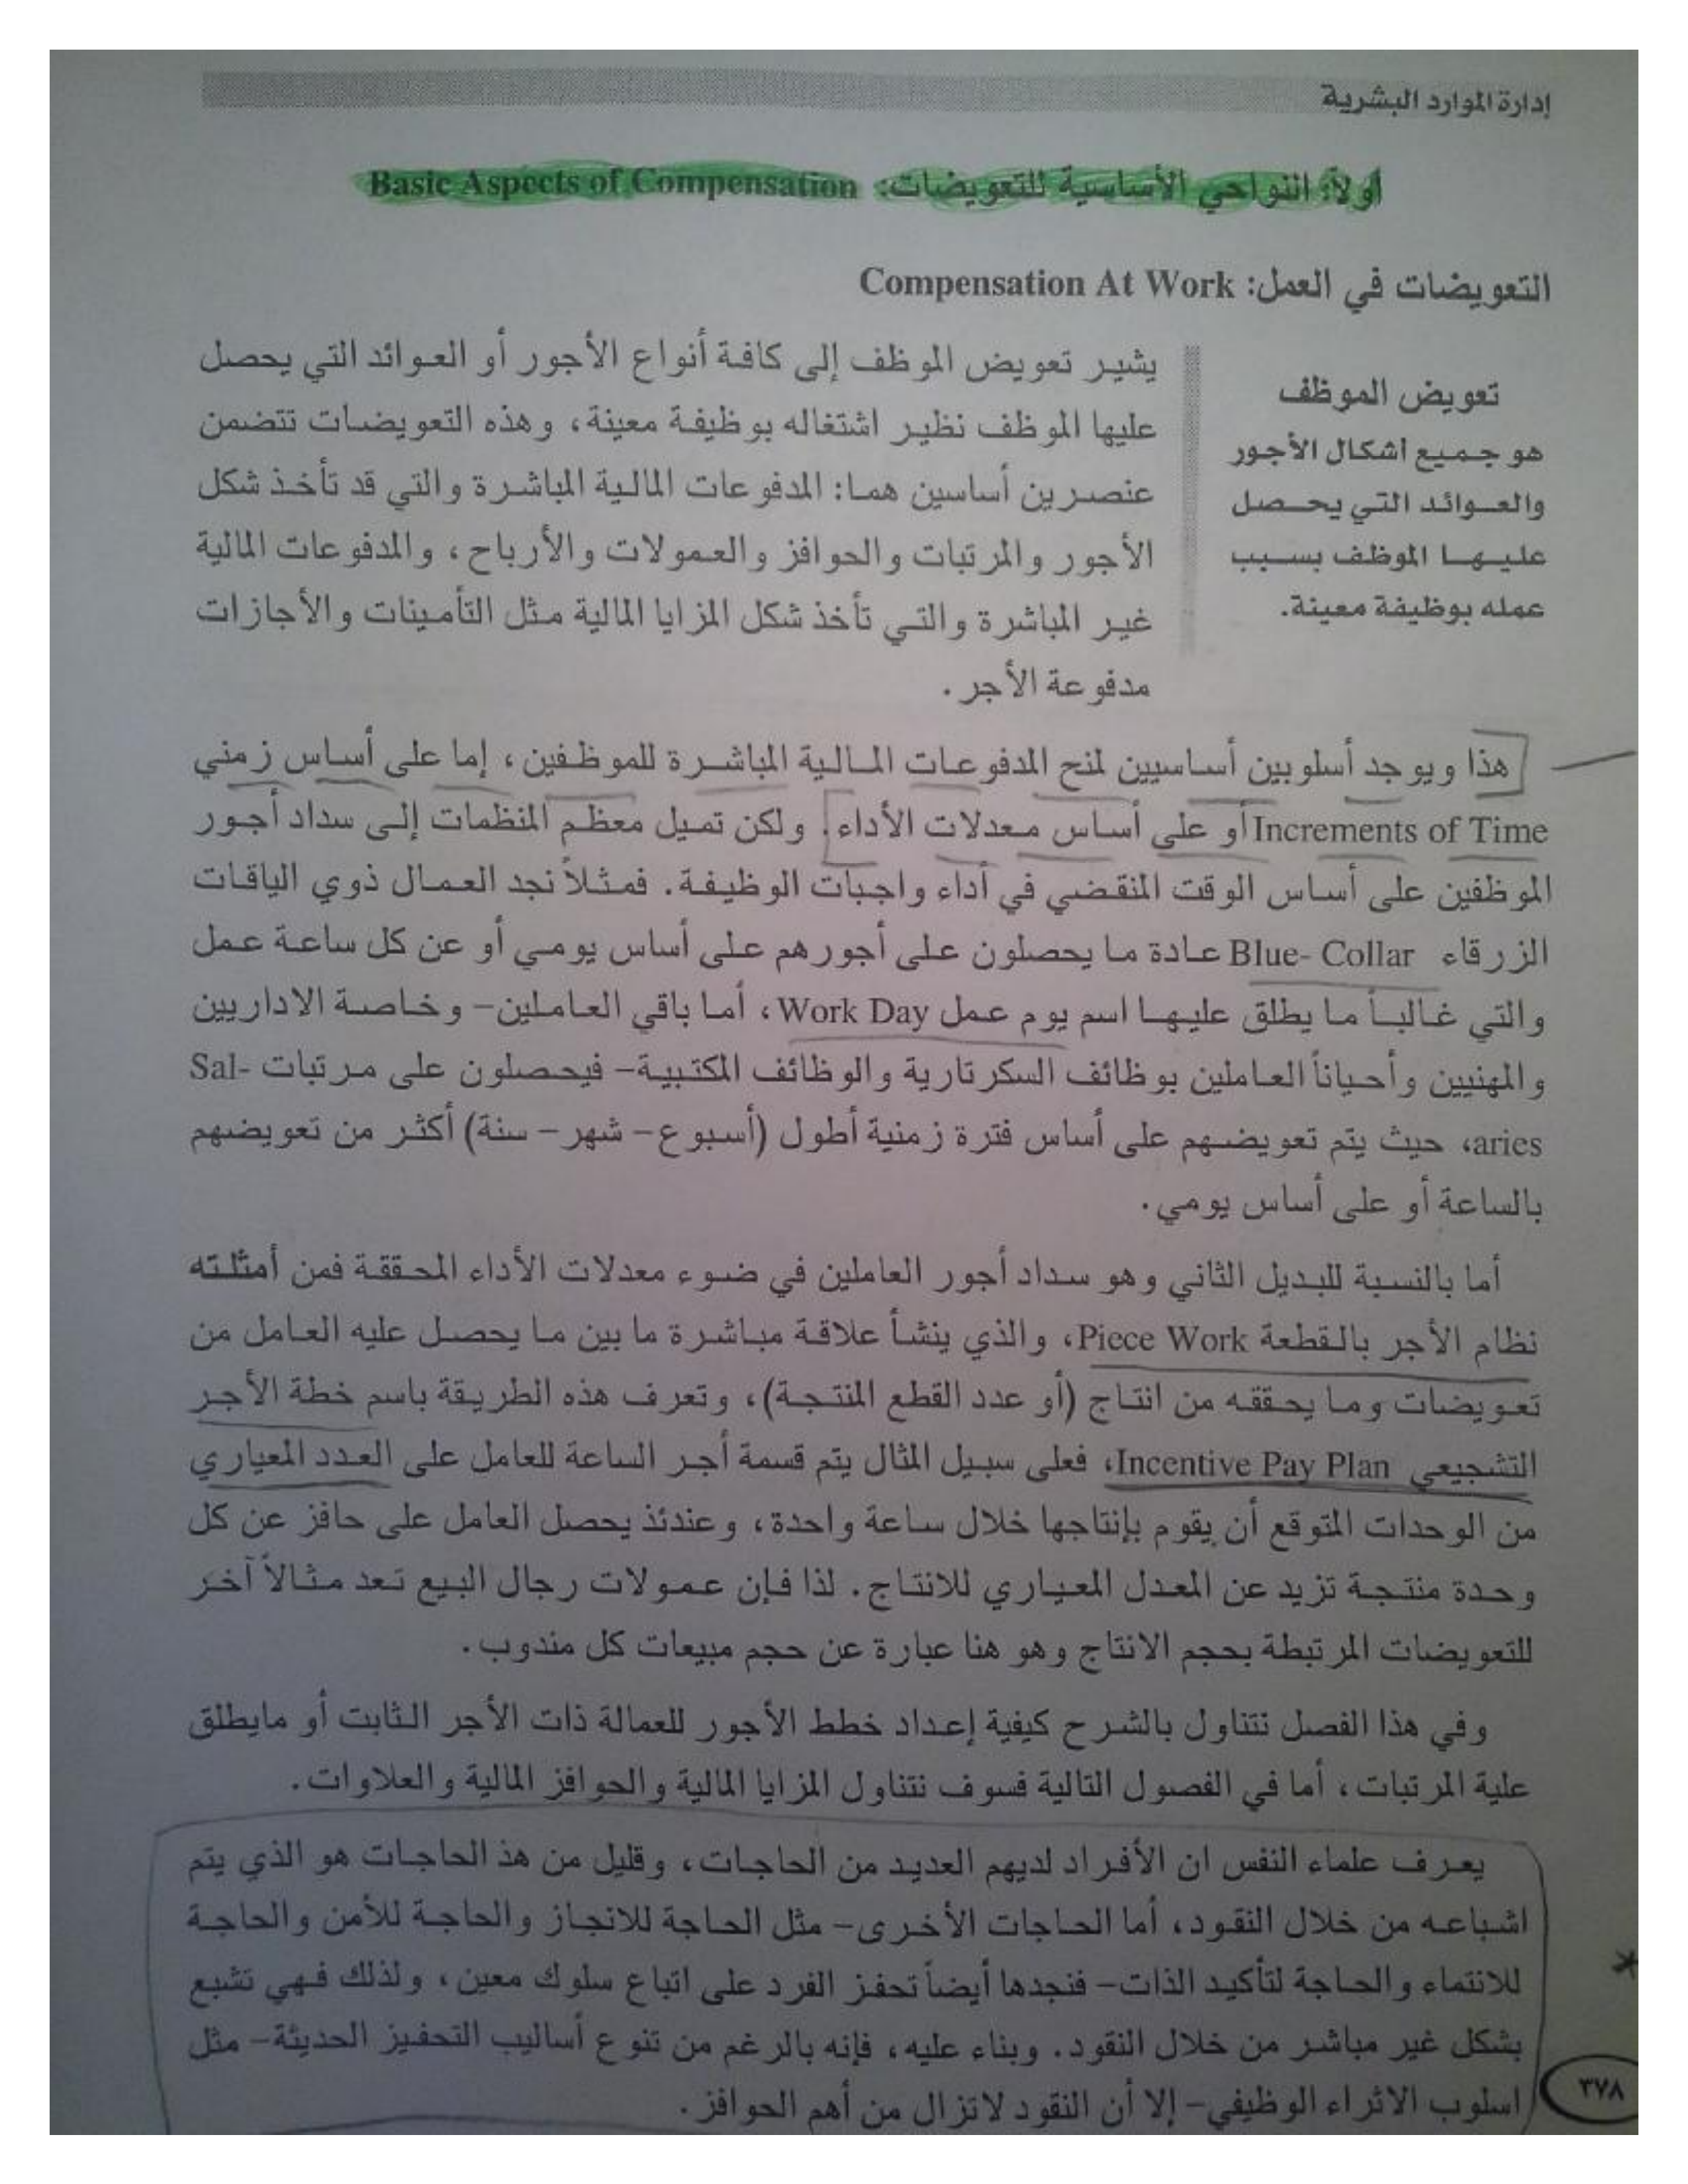 إدارة الموارد البشرية
أولاً: النواحي الأساسية للتعويضات: Basic Aspects of Compensation
التعويضات في العمل: Compensation At Work
تعويض الموظف
هو جميع أشكال الأجور
والعوائد التي يحصل
عليها الموظف بسبب
عمله بوظيفة معينة.
يشير تعويض الموظف إلى كافة أنواع الأجور أو العوائد التي يحصل
عليها الموظف نظير اشتغاله بوظيفة معينة، وهذه التعويضات تتضمن
عنصرين أساسين هما: المدفوعات المالية المباشرة والتي قد تأخذ شكل
الأجور والمرتبات والحوافز والعمولات والأرباح، والمدفوعات المالية
غير المباشرة والتي تأخذ شكل المزايا المالية مثل التأمينات والأجازات
مدفوعة الأجر.
هذا ويوجد أسلوبين أساسيين لمنح المدفوعات المالية المباشرة للموظفين، إما على أساس زمني
Increments of Time أو على أساس معدلات الأداء. ولكن تميل معظم المنظمات إلى سداد أجور
الموظفين على أساس الوقت المنقضي في أداء واجبات الوظيفة. فمثلاً نجد العمال ذوي الياقات
الزرقاء Blue- Collar عادة ما يحصلون على أجورهم على أساس يومي أو عن كل ساعة عمل
والتي غالباً ما يطلق عليها اسم يوم عمل Work Day، أما باقي العاملين- وخاصة الاداريين
والمهنيين وأحياناً العاملين بوظائف السكرتارية والوظائف المكتبية- فيحصلون على مرتبات Sal-
aries، حيث يتم تعويضهم على أساس فترة زمنية أطول (أسبوع- شهر- سنة) أكثر من تعويضهم
بالساعة أو على أساس يومي.
أما بالنسبة للبديل الثاني وهو سداد أجور العاملين في ضوء معدلات الأداء المحققة فمن أمثلته
نظام الأجر بالقطعة Piece Work، والذي ينشأ علاقة مباشرة ما بين ما يحصل عليه العامل من
تعويضات وما يحققه من انتاج (أو عدد القطع المنتجة)، وتعرف هذه الطريقة باسم خطة الأجر
التشجيعي Incentive Pay Plan، فعلى سبيل المثال يتم قسمة أجر الساعة للعامل على العدد المعياري
من الوحدات المتوقع أن يقوم بإنتاجها خلال ساعة واحدة، وعندئذ يحصل العامل على حافز عن كل
وحدة منتجة تزيد عن المعدل المعياري للانتاج. لذا فإن عمولات رجال البيع تعد مثالاً آخر
للتعويضات المرتبطة بحجم الانتاج وهو هنا عبارة عن حجم مبيعات كل مندوب.
وفي هذا الفصل نتناول بالشرح كيفية إعداد خطط الأجور للعمالة ذات الأجر الثابت أو مايطلق
علية المرتبات، أما في الفصول التالية فسوف نتناول المزايا المالية والحوافز المالية والعلاوات.
يعرف علماء النفس ان الأفراد لديهم العديد من الحاجات، وقليل من هذ الحاجات هو الذي يتم
اشباعه من خلال النقود، أما الحاجات الأخرى- مثل الحاجة للانجاز والحاجة للأمن والحاجة
للانتماء والحاجة لتأكيد الذات- فنجدها أيضاً تحفز الفرد على اتباع سلوك معين، ولذلك فهي تشبع
بشكل غير مباشر من خلال النقود. وبناء عليه، فإنه بالرغم من تنوع أساليب التحفيز الحديثة- مثل
اسلوب الاثراء الوظيفي- إلا أن النقود لاتزال من أهم الحوافز.
٣٧٨